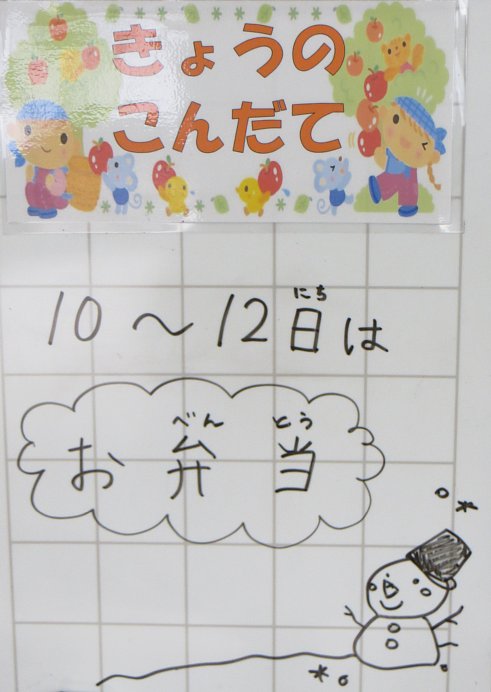 きょうの
こんだて
10～12日は
にち
お弁当
べんとう